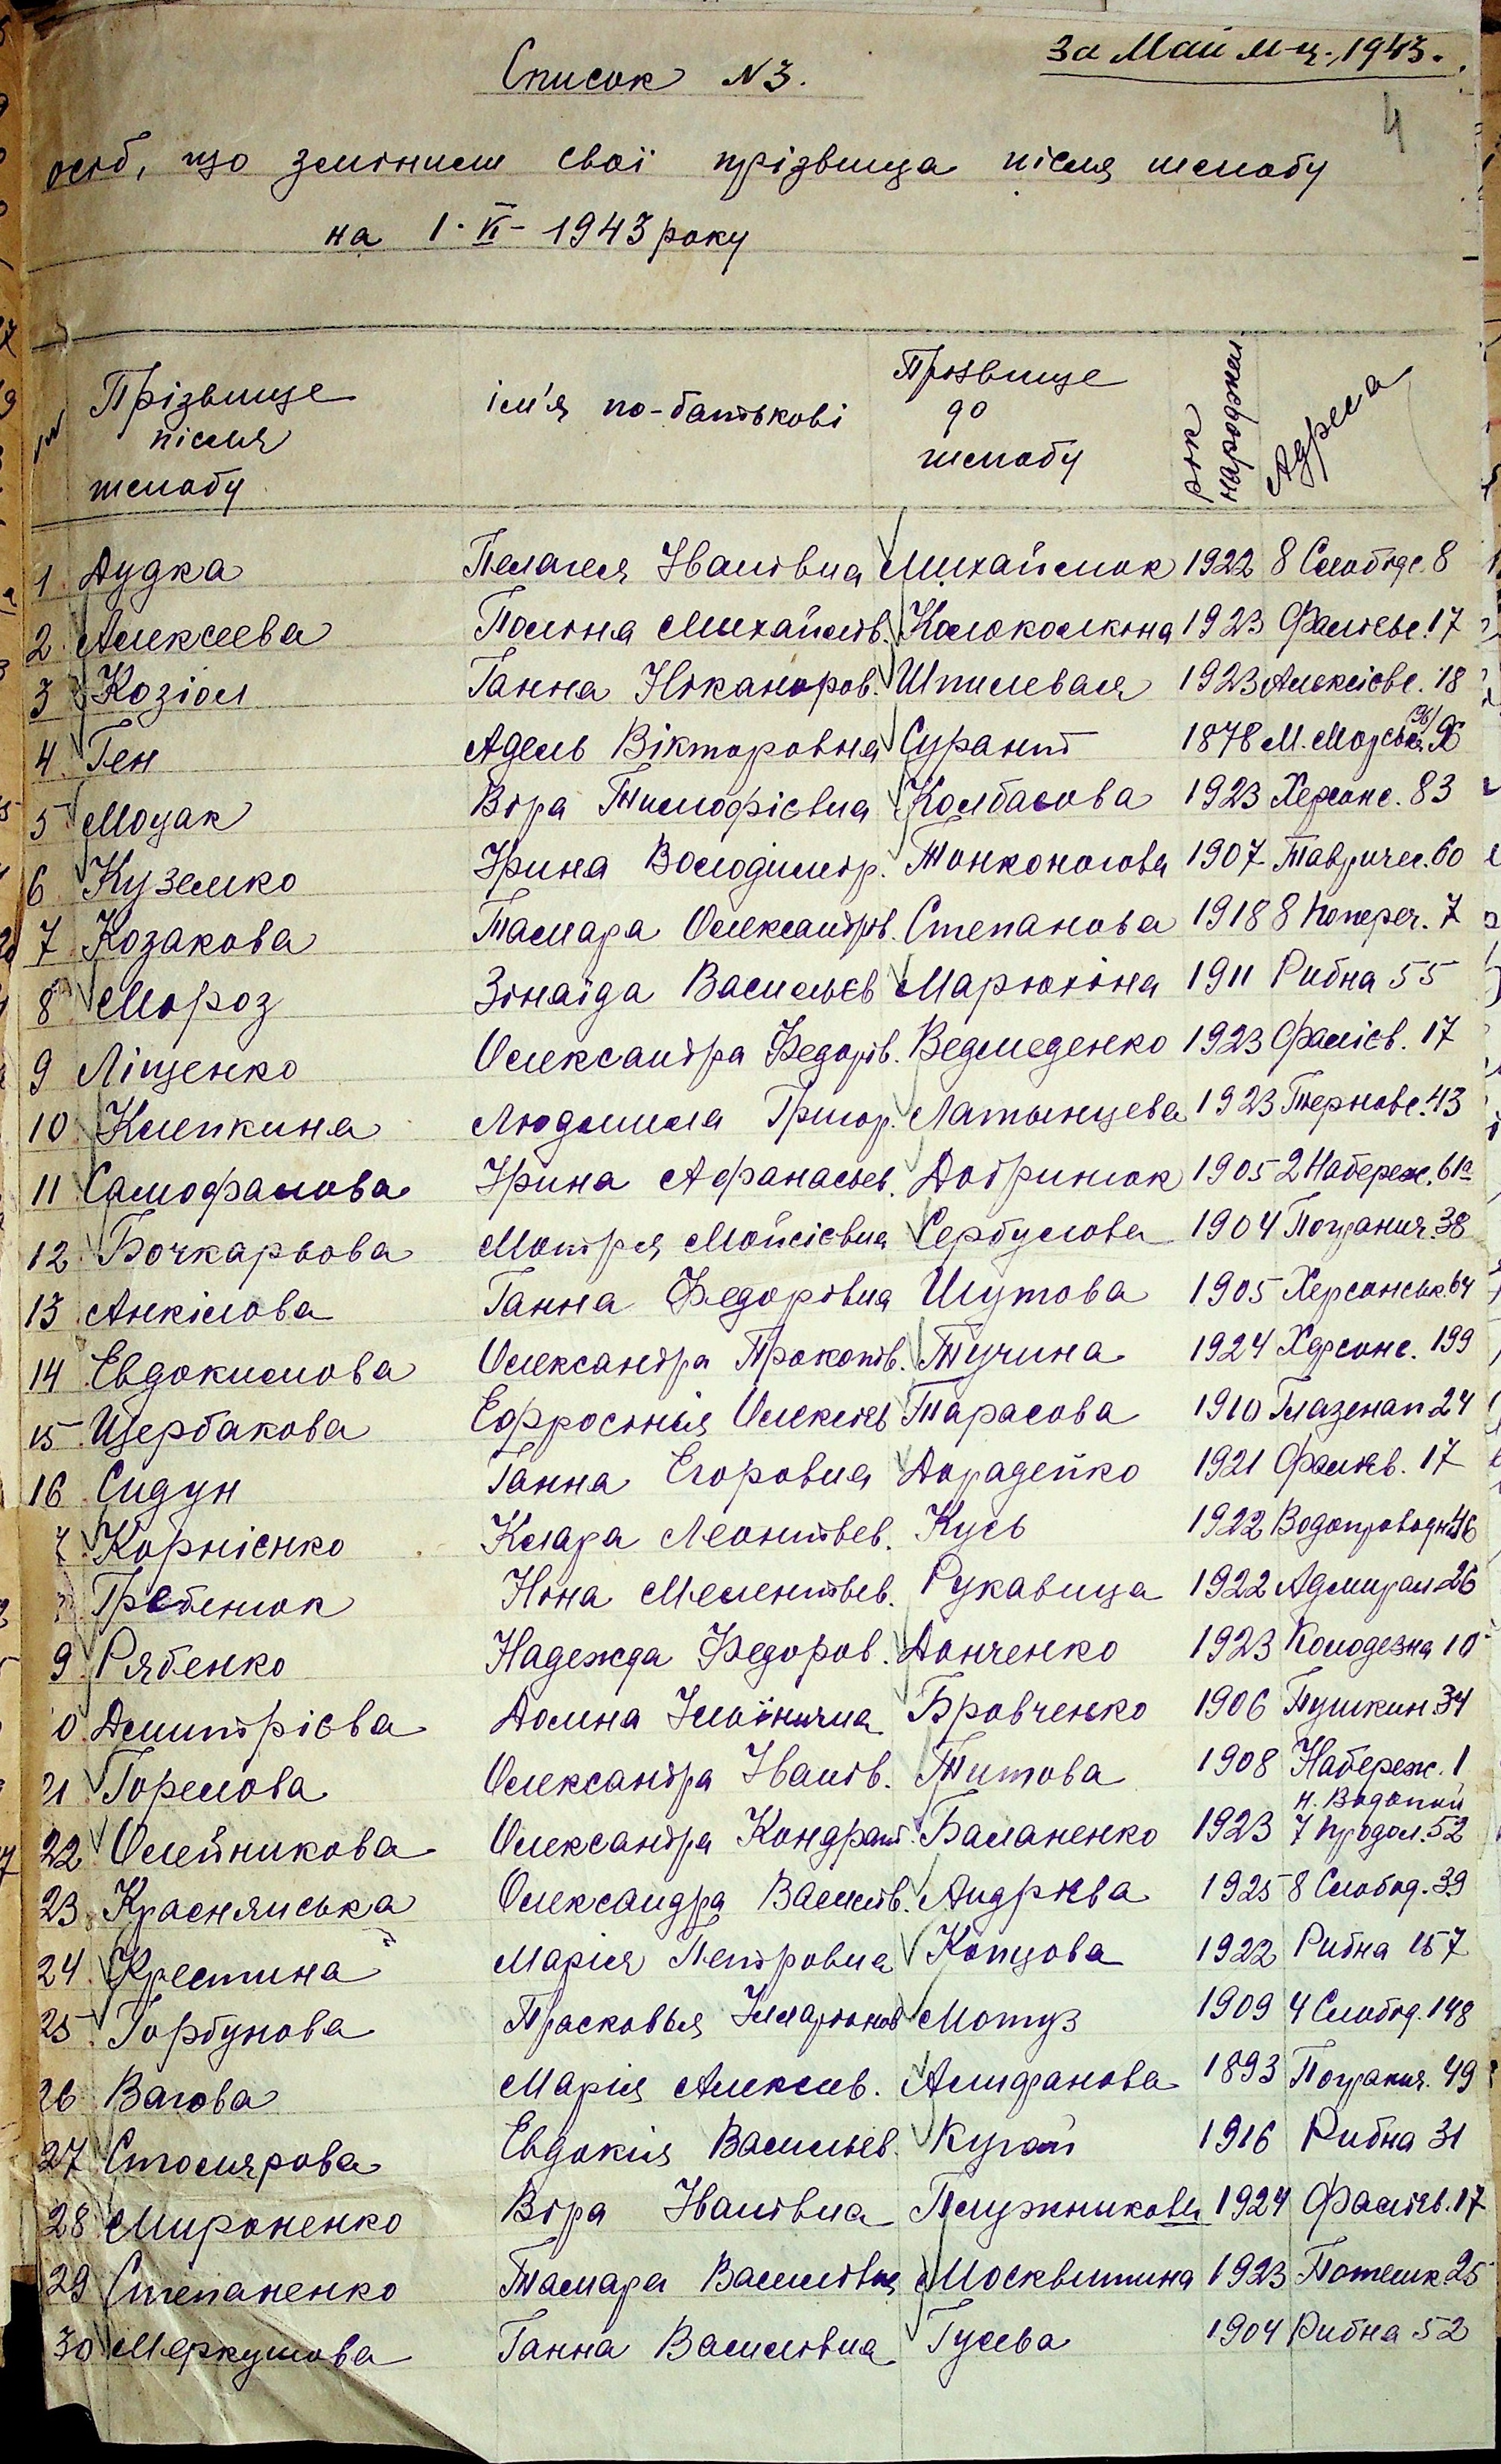 За Май м-ц, 1943.
Список N 3.
4
осіб, що змінили свої прізвища після шлюбу
на 1·VI- 1943 року
Прізвище після шлюбу ім'я по-батькові Прізвище до шлюбу рік народжен. Адреса
1 Дудка Пелагея Іванівна Михайлюк 1922 8 Слобідс. 8
2 Алексеева Поліна Михайлів. Колоколкіна 1923 Фалієвс. 17
3 Козіол Ганна Ніканоров. Шпилевая 1923 Алексієвс. 18
4 Ген Адель Вікторовна Сурант 1878 М. Морська 96
5 Моцак Віра Тимофієвна Колбасова 1923 Херсонс. 83
6 Куземко Ірина Володимір. Тонконогова 1907 Тавричес. 60
7 Козакова Тамара Олександрів. Степанова 1918 8 Попереч. 7
8 Мороз Зінаїда Васильєв Марюхіна 1911 Рибна 55
9 Ліщенко Олександра Федорів. Ведмеденко 1923 Фалієв. 17
10 Клепкина Людмила Григор. Латынцева 1923 Терновс. 43
11 Самофалова Ірина Афанасьев. Добринюк 1905 2 Набереж. 61а
12 Бочкарьова Мотря Мойсієвна Сербулова 1904 Погранич. 38
13 Анкілова Ганна Федорівна Шутова 1905 Херсонськ. 64
14 Евдокимова Олександра Прокопів. Тучина 1924 Херсонс. 199
15 Щербакова Ефросінья Олексіев Тарасова 1910 Глазенап 24
16 Сидун Ганна Егоровна Дорадейко 1921 Фалієв. 17
7 Корнієнко Клара Леонтьев. Кусь 1922 Водопроводн. 46
Гребенюк Ніна Мелентьев. Рукавица 1922 Адмирал. 26
9 Рябенко Надежда Федоров. Донченко 1923 Колодезна 10
0 Дмитрієва Доміна Іллінична Бровченко 1906 Пушкин. 34
21 Горелова Олександра Іванів. Титова 1908 Набереж. 1
н. Водопий
22 Олейникова Олександра Кондрат. Баланенко 1923 7 Продол. 52
23 Краснянська Олександра Василів. Андрієва 1925 8 Слобод. 39
24 Крестина Марія Петровна Копцова 1922 Рибна 157
25 Горбунова Прасковья Іларіонов Мотуз 1909 4 Слобід. 148
26 Вагова Марія Алексеев. Алифанова 1893 Погранич. 49
27 Столярова Евдокія Васильев. Кугай 1916 Рибна 31
28 Мироненко Віра Іванівна Плужникова 1924 Фаліев. 17
29 Степаненко Тамара Василівна Москвитина 1923 Потемк. 25
30 Меркушова Ганна Василівна Гусева 1904 Рибна 52